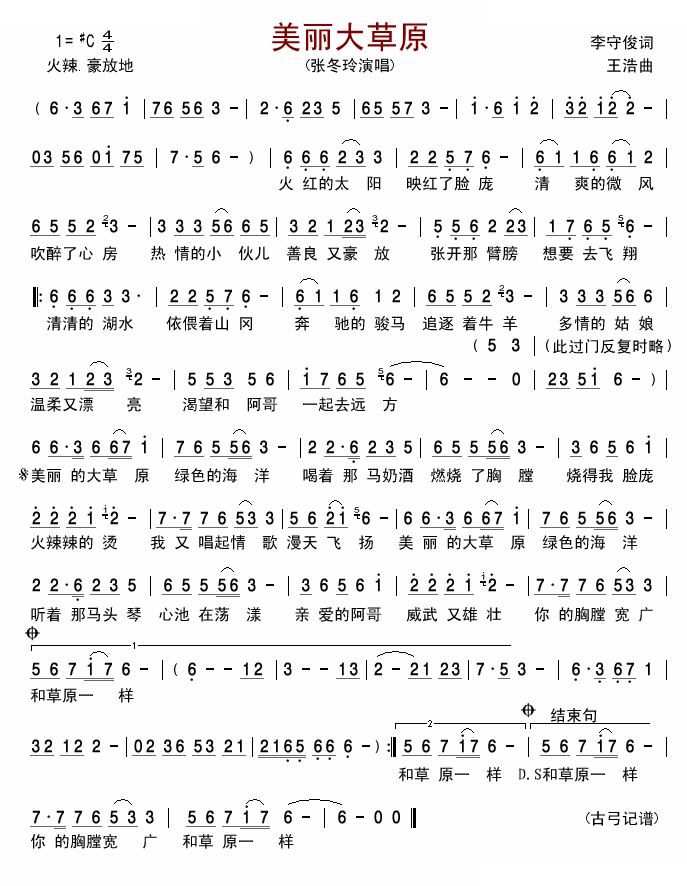 美丽大草原
1= #C 4/4
火辣.豪放地
(张冬玲演唱)
李守俊词
王浩曲
( 6·3 67 1 | 76 56 3 - | 2·6 23 5 | 65 57 3 - | 1·6 1 2 | 32 12 2 - |
03 56 01 75 | 7·5 6 - ) | 6 6·6 23 3 | 2 2 5·7 6 - | 61 1 6 61 2 |
火 红的太 阳 映红了脸 庞 清 爽的微 风
6 5 5 2 3 - | 3 3 3 56 6 5 | 3 2 1 23 2 - | 5 5 6 2 23 | 1 7 6 5 6 - |
吹醉了心 房 热 情的小 伙儿 善良 又豪 放 张开那 臂膀 想要 去飞 翔
‖: 6 6·6 3 3· | 2 2 5·7 6 - | 61 1 6 1 2 | 6 5 5 2 3 - | 3 3 3 56 6 |
清清的 湖水 依偎着山 冈 奔 驰的 骏马 追逐 着牛 羊 多情的 姑 娘
( 5 3 |(此过门反复时略)
3 2 1 23 2 - | 5 5 3 5 6 | 1 7 6 5 6 - | 6 - - 0 | 23 51 6 - ) |
温柔又漂 亮 渴望和 阿哥 一起去远 方
6 6·3 6 67 1 | 7 6 5 56 3 - | 2 2·6 2 3 5 | 6 5 5 56 3 - | 3 6 5 6 1 |
𝄋美丽 的大草 原 绿色的海 洋 喝着 那 马奶酒 燃烧 了胸 膛 烧得我 脸庞
2 2 2 1 2 - | 7·7 7 6 53 3 | 5 6 21 6 - | 6 6·3 6 67 1 | 7 6 5 56 3 - |
火辣辣的 烫 我 又 唱起情 歌 漫天 飞 扬 美 丽 的大草 原 绿色的海 洋
2 2·6 2 3 5 | 6 5 5 56 3 - | 3 6 5 6 1 | 2 2 2 1 2 - | 7·7 7 6 53 3 |
听着 那马头 琴 心池 在荡 漾 亲 爱的阿哥 威武 又雄 壮 你 的胸膛 宽 广
𝄌 1
5 6 7 17 6 - | ( 6 - - 12 | 3 - - 13 | 2 - 21 23 | 7·5 3 - | 6·3 67 1 |
和草原一 样
𝄌 结束句
2
32 12 2 - | 02 36 53 21 | 2165 66 6 - ) :‖ 5 6 7 17 6 - | 5 6 7 17 6 - |
和草 原一 样 D.S和草原一 样
7·7 7 6 53 3 | 5 6 7 17 6 - | 6 - 0 0 ‖
你 的胸膛宽 广 和草 原一 样
(古弓记谱)